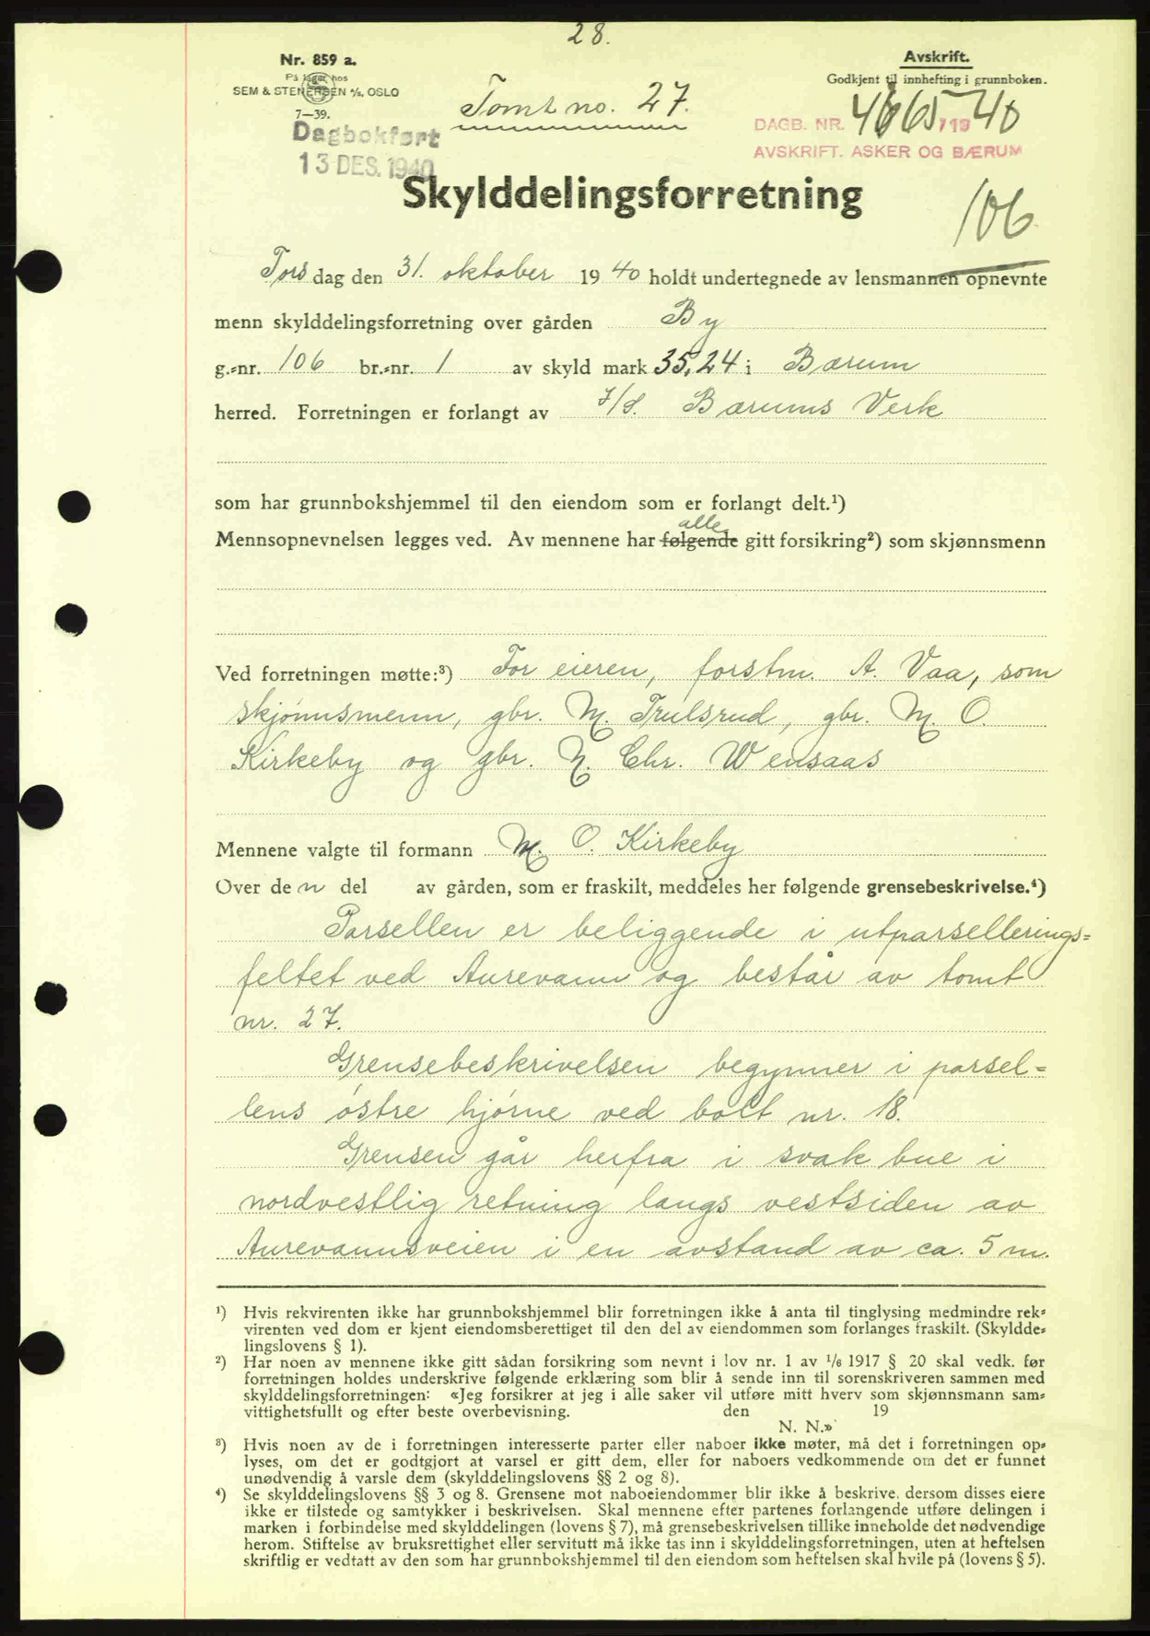 28.
Nr. 859 a.
På lager hos
SEM & STENERSEN A/S, OSLO
7—39.
Tomt no. 27.
Avskrift.
Godkjent til innhefting i grunnboken.
DAGB. NR. 4665/1940
AVSKRIFT. ASKER OG BÆRUM
Dagbokført
13 DES. 1940
Skylddelingsforretning
106
Torsdag den 31. oktober 1940 holdt undertegnede av lensmannen opnevnte
menn skylddelingsforretning over gården By
g.-nr. 106 br.-nr. 1 av skyld mark 35,24 i Bærum
herred. Forretningen er forlangt av I/S. Bærums Verk
som har grunnbokshjemmel til den eiendom som er forlangt delt.¹)
alle
Mennsopnevnelsen legges ved. Av mennene har følgende gitt forsikring²) som skjønnsmenn
Ved forretningen møtte:³) For eieren, forstm. A. Vaa, som
skjønnsmenn, gbr. M. Trulsrud, gbr. M. O.
Kirkeby og gbr. N. Chr. Wensaas
Mennene valgte til formann M. O. Kirkeby
Over den del av gården, som er fraskilt, meddeles her følgende grensebeskrivelse.⁴)
Parsellen er beliggende i utparsellerings=
feltet ved Aurevann og består av tomt
nr. 27.
Grensebeskrivelsen begynner i parsel=
lens østre hjørne ved bolt nr. 18.
Grensen går herfra i svak bue i
nordvestlig retning langs vestsiden av
Aurevannsveien i en avstand av ca. 5 m.
¹) Hvis rekvirenten ikke har grunnbokshjemmel blir forretningen ikke å anta til tinglysing medmindre rek-
virenten ved dom er kjent eiendomsberettiget til den del av eiendommen som forlanges fraskilt. (Skyldde-
lingslovens § 1).
²) Har noen av mennene ikke gitt sådan forsikring som nevnt i lov nr. 1 av 1/6 1917 § 20 skal vedk. før
forretningen holdes underskrive følgende erklæring som blir å sende inn til sorenskriveren sammen med
skylddelingsforretningen: «Jeg forsikrer at jeg i alle saker vil utføre mitt hverv som skjønnsmann sam-
vittighetsfullt og efter beste overbevisning. den 19
N. N.»
³) Hvis noen av de i forretningen interesserte parter eller naboer ikke møter, må det i forretningen op-
lyses, om det er godtgjort at varsel er gitt dem, eller for naboers vedkommende om det er funnet
unødvendig å varsle dem (skylddelingslovens §§ 2 og 8).
⁴) Se skylddelingslovens §§ 3 og 8. Grensene mot naboeiendommer blir ikke å beskrive, dersom disses eiere
ikke er tilstede og samtykker i beskrivelsen. Skal mennene efter partenes forlangende utføre delingen i
marken i forbindelse med skylddelingen (lovens § 7), må grensebeskrivelsen tillike inneholde det nødvendige
herom. Stiftelse av bruksrettighet eller servitutt må ikke tas inn i skylddelingsforretningen, uten at heftelsen
skriftlig er vedtatt av den som har grunnbokshjemmel til den eiendom som heftelsen skal hvile på (lovens § 5).